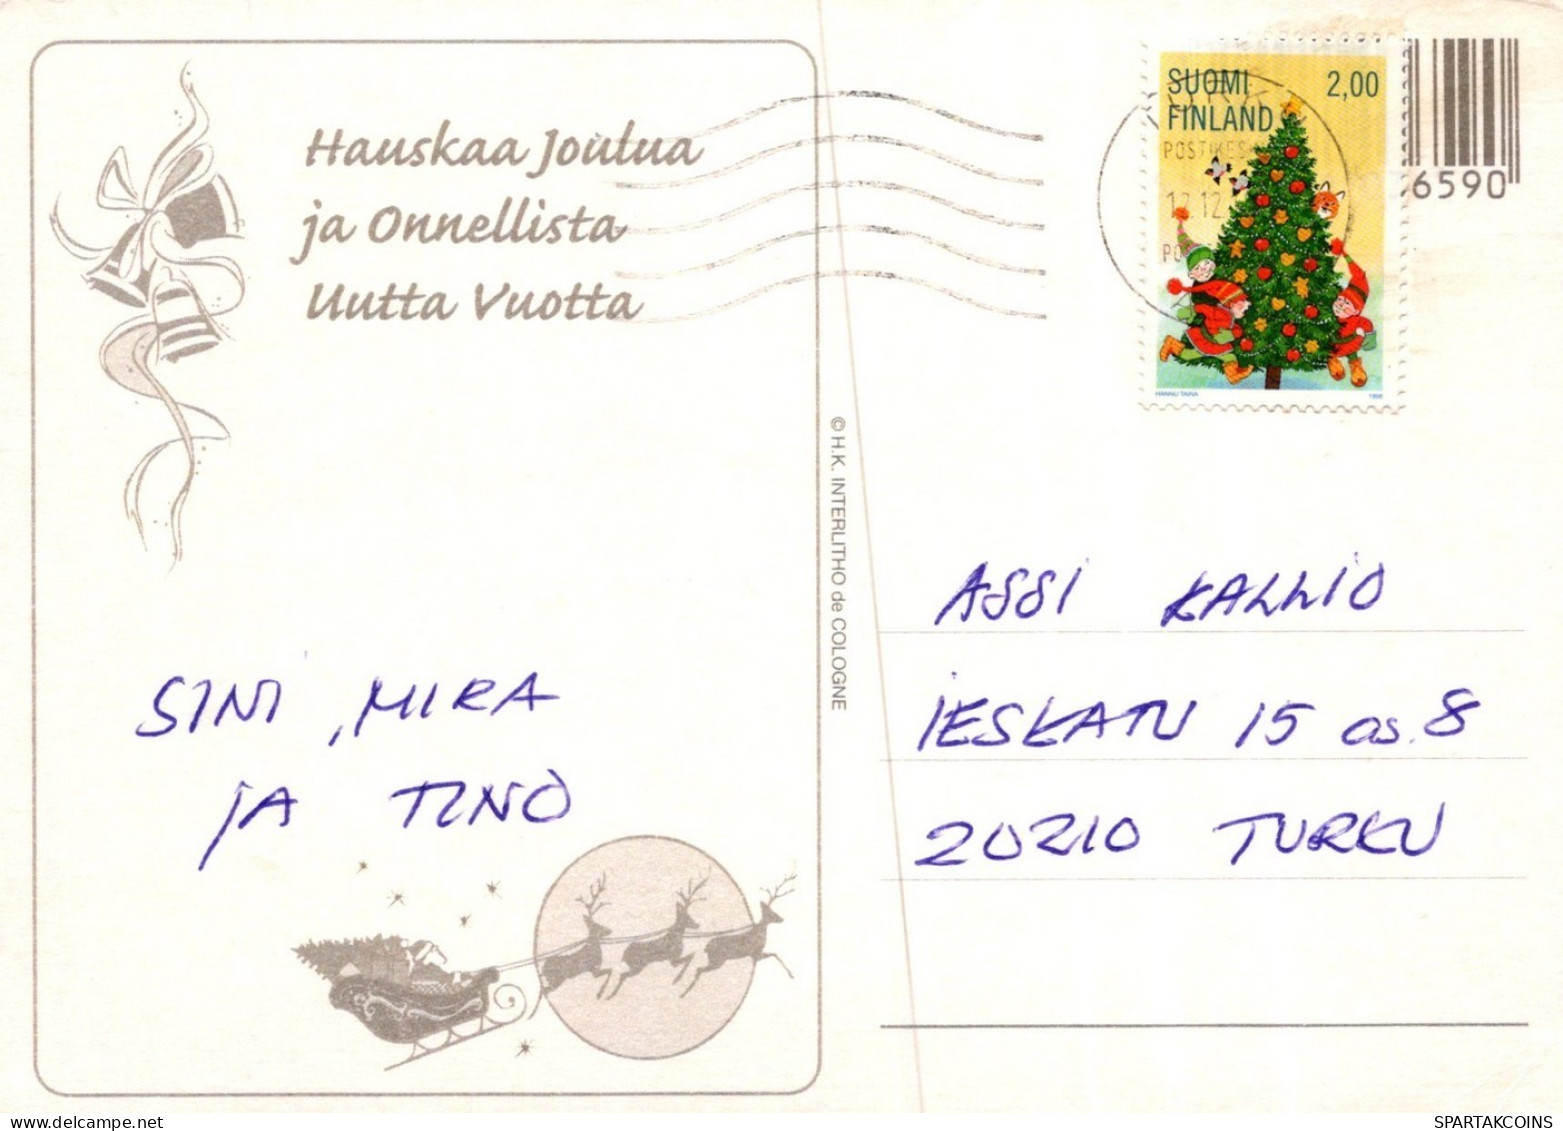 Hauskaa Joulua
ja Onnellista
Uutta Vuotta
SINI, MIRA
JA TINO
© H.K. INTERLITHO de COLOGNE
SUOMI 2,00
FINLAND
POSTIKES
12
PO
HANNU TAINA 1998
6590
ASSI KALLIO
IESKATU 15 as. 8
20210 TURKU
SPARTAKCOINS